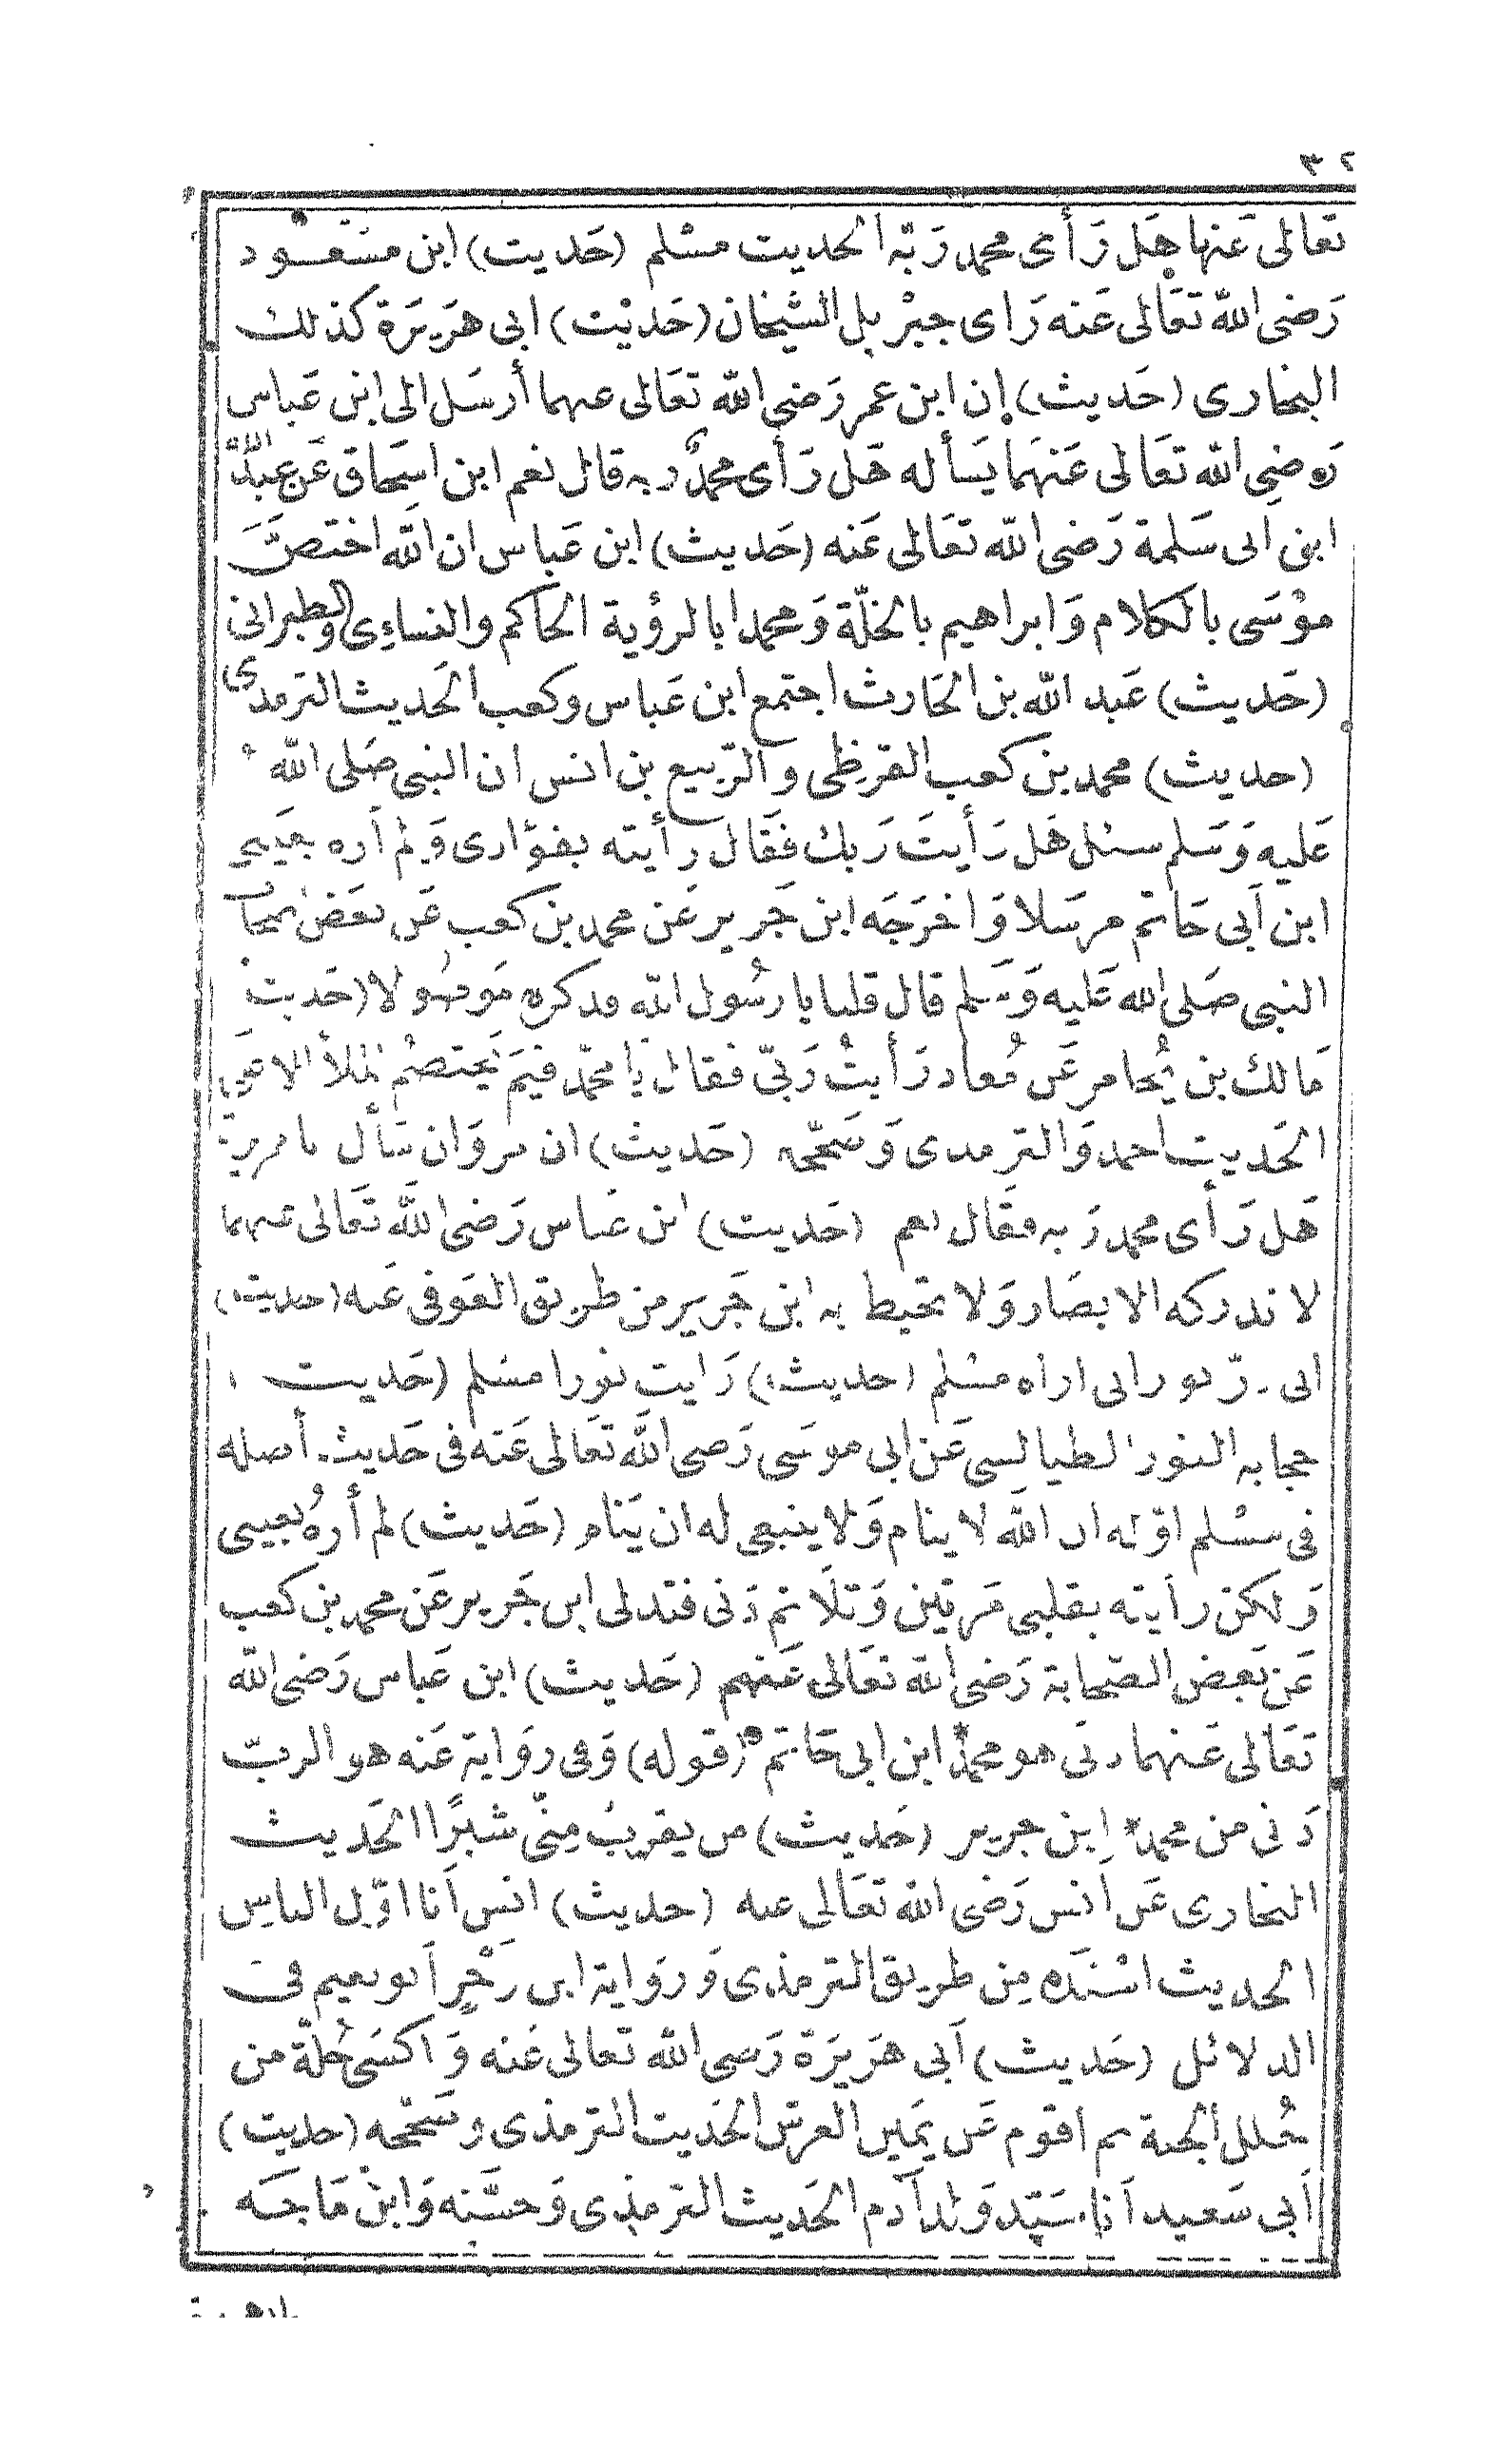 ٣٢
تعالى عنها هَل رَأى محمد رَبّه الحديث مسْلم (حَديث) ابن مسْعود
رَضى الله تعَالى عَنه رَاى جبْريل الشيخان (حَديْث) ابى هرَيرَة كذلك
البخارى (حَديث) إن ابن عمر رَضى الله تعَالى عهما أرسَل الى ابن عَباس
رَضِى الله تعَالى عَنهَما يَسأله هَل رَأى محمدٌ ربه قال نعم ابن اسحَاق عَن عبد الله
ابن ابى سَلمة رَضى الله تعَالى عَنه (حَديث) ابن عَباس ان الله اختصَّ
موْسَى بالكلام وَابراهيم بالخلّة وَمحمدا بالرؤية الحاكم والنساءى والطبرانى
(حَديث) عَبد الله بن الحَارث اجتمع ابن عَباس وكعب الحَديث الترمذى
(حديث) محمد بن كعب القرظى والرّبيع بن انس ان النبى صَلى الله
عَليه وَسَلم سئل هَل رَأيتَ رَبك فقَال رأيته بفوًادى وَلم أره بعينى
ابن أبى حَاتم مرسَلا وَاخرَجَه ابن جَرير عَن محمد بن كعب عَن بعَض
النبى صَلى الله عَليه وَسَلم قال قلنا يا رسُول الله ودكره مَوصولا (حَديث
مَالك بن يُخامر عَن مُعاد رَأيتُ رَبّى فقال يَا محمّد فيمَ يختصمُ الملأ الاعلى
الحَديث احمد وَالترمدى وَصَحّحه (حَديث) ان مروَان سَأل
هَل رَأى محمد رَبه فقَال نعم (حَديث) ابن عَباس رَضى الله تعَالى عنهما
لا تدركه الابصَار وَلا تحيط به ابن جَرير من طريق العَوفى عَنه (حديث)
ابى ذرّ نورانى اراه مسْلم (حديث) رَايت نورا مسْلم (حَديث
حجابه النور الطيالسى عَن ابى موسَى رَضى الله تعَالى عَنه فى حَديث أصله
فى مسْلم اوّله ان الله لا ينام وَلا ينبغى له ان يَنام (حَديث) لم أرهُ بعينى
وَلكن رأيته بقلبى مَرتين وَتلاَ ثم دَنى فتدلى ابن جَرير عَن محمد بن كعب
عَن بَعض الصّحابة رَضى الله تعَالى عَنهم (حَديث) ابن عَباس رَضى الله
تعَالى عَنهما دنى هو محمدٌ ابن ابى حَاتم (قوله) وَفى روَاية عَنه هو الربّ
دَنى من محمد ابن جرير (حَديث) من يقربْ منّى شبرًا الحَديث
البخارى عَن أنس رَضى الله تعَالى عنه (حديث) انسِ أنا اوّل الناس
الحديث اسْنَده مِن طريق الترمذى وَروَاية ابن زحْرٍ أبو نعيم فى
الدلائل (حَديث) أبى هرَيرَة رَضى الله تعالى عَنه وَاكسَى حُلّة من
حُلل الجنة ثم اقوم عَن يَمين العرش الحَديث الترمذى وصَحّحه (حديث)
أبى سَعيد أنا سَيّد وَلد آدم الحَديث الترمذى وَحسَّنه وَابن مَاجَه